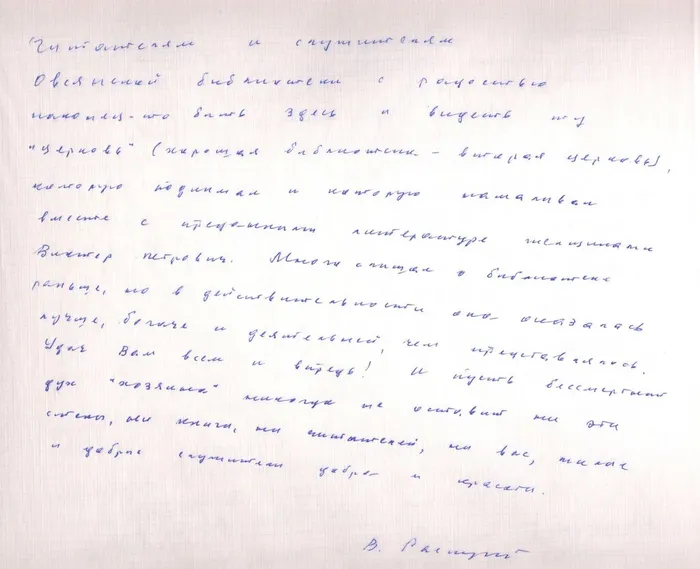 Читателям и служителям
Овсянской библиотеки с радостью
наконец-то быть здесь и видеть ту
"церковь" (хорошая библиотека - вторая церковь),
которую поднимал и которую намаливал
вместе с преданными литературе женщинами
Виктор Петрович. Много слышал о библиотеке
раньше, но в действительности она оказалась
лучше, богаче и деятельней, чем представлялось.
Удач Вам всем и впредь! И пусть бессмертный
дух "хозяина" никогда не оставит ни эти
стены, ни книги, ни читателей, ни вас, милые
и добрые служители добра и красоты.
В. Распутин